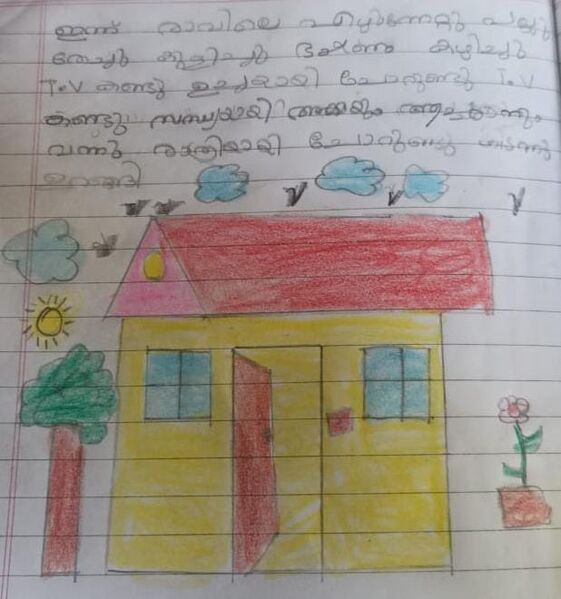 ഇന്ന് രാവിലെ എഴുന്നേറ്റു പല്ലു
തേച്ചു കുളിച്ചു ഭക്ഷണം കഴിച്ചു
T.V കണ്ടു ഉച്ചയായി ചോറുണ്ടു T.V
കണ്ടു സന്ധ്യയായി അമ്മയും
വന്നു രാത്രിയായി ചോറുണ്ടു കിടന്നു
ഉറങ്ങി